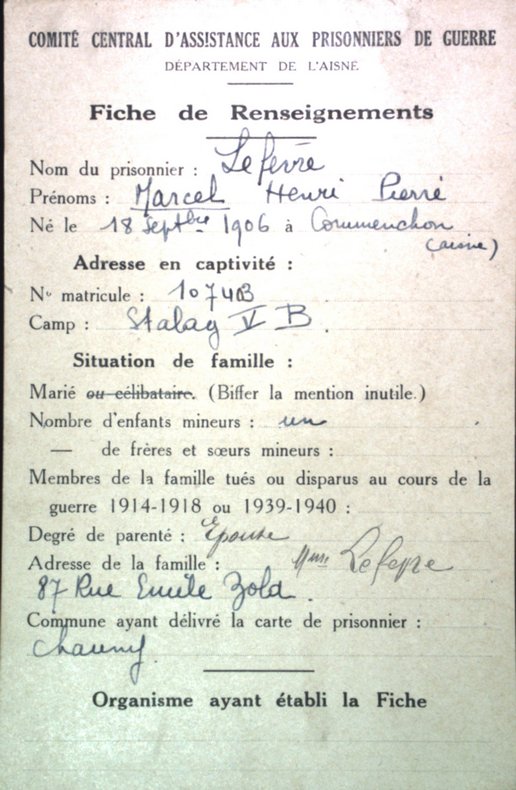 COMITÉ CENTRAL D'ASSISTANCE AUX PRISONNIERS DE GUERRE
DÉPARTEMENT DE L'AISNE
Fiche de Renseignements
Nom du prisonnier : Lefèvre
Prénoms : Marcel Henri Pierre
Né le 18 Septbre 1906 à Commenchon
(aisne)
Adresse en captivité :
N° matricule :
Camp : Stalag V B.
Situation de famille :
Marié ou célibataire. (Biffer la mention inutile.)
Nombre d'enfants mineurs : un
— de frères et sœurs mineurs :
Membres de la famille tués ou disparus au cours de la
guerre 1914-1918 ou 1939-1940 :
Degré de parenté : Epouse
Adresse de la famille : Mme Lefevre
87 Rue Emile Zola.
Commune ayant délivré la carte de prisonnier :
Chauny.
Organisme ayant établi la Fiche